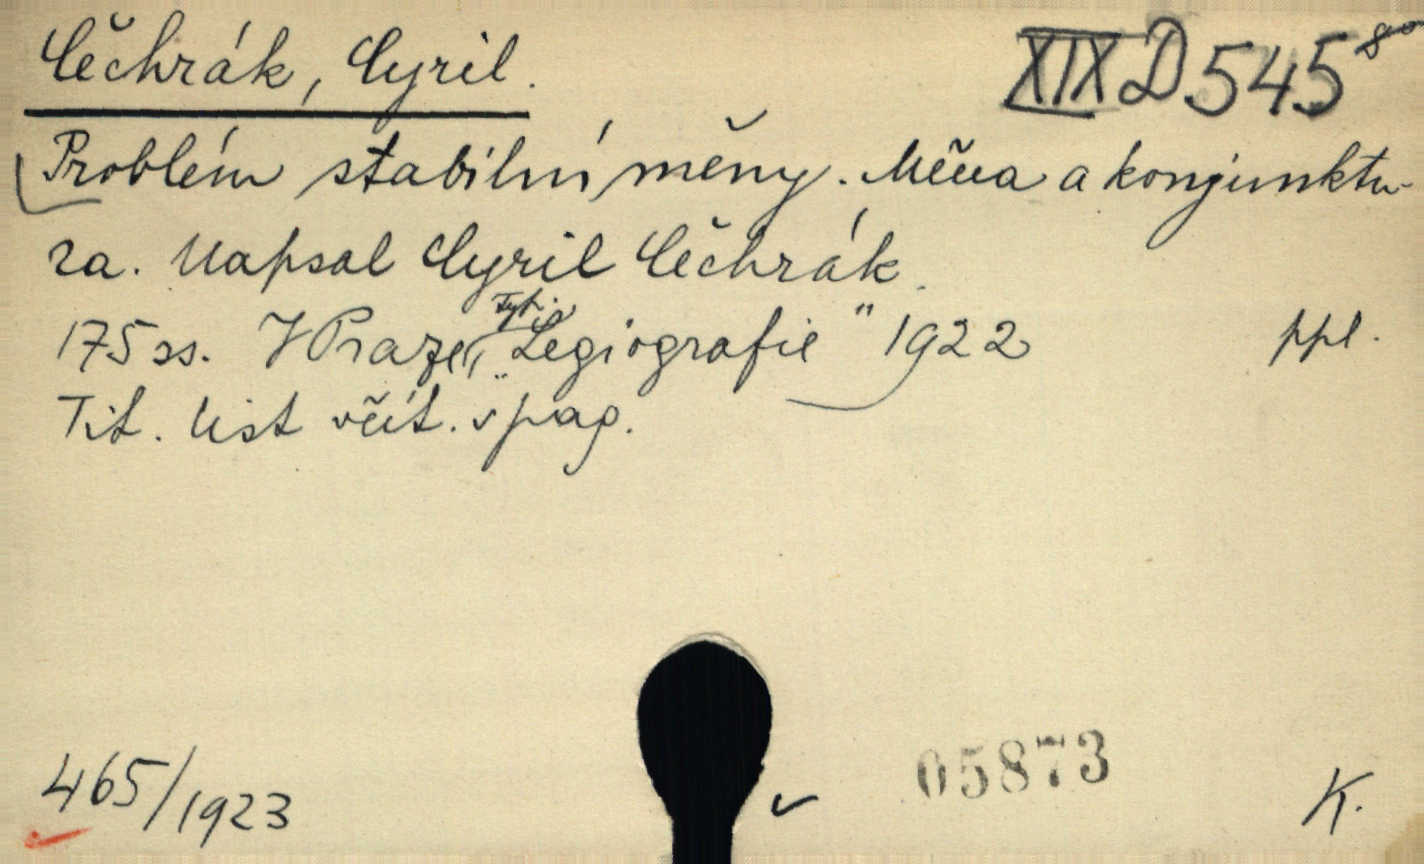 Čečhrák, Cyril.
XIX D 545 8°
Problém stabilní měny. Měna a konjunktu-
ra. Napsal Cyril Čečhrák.
175 ss. V Praze, Typis „Legiografie" 1922
ppl.
Tit. list včít. v pag.
465/1923
05873
K.